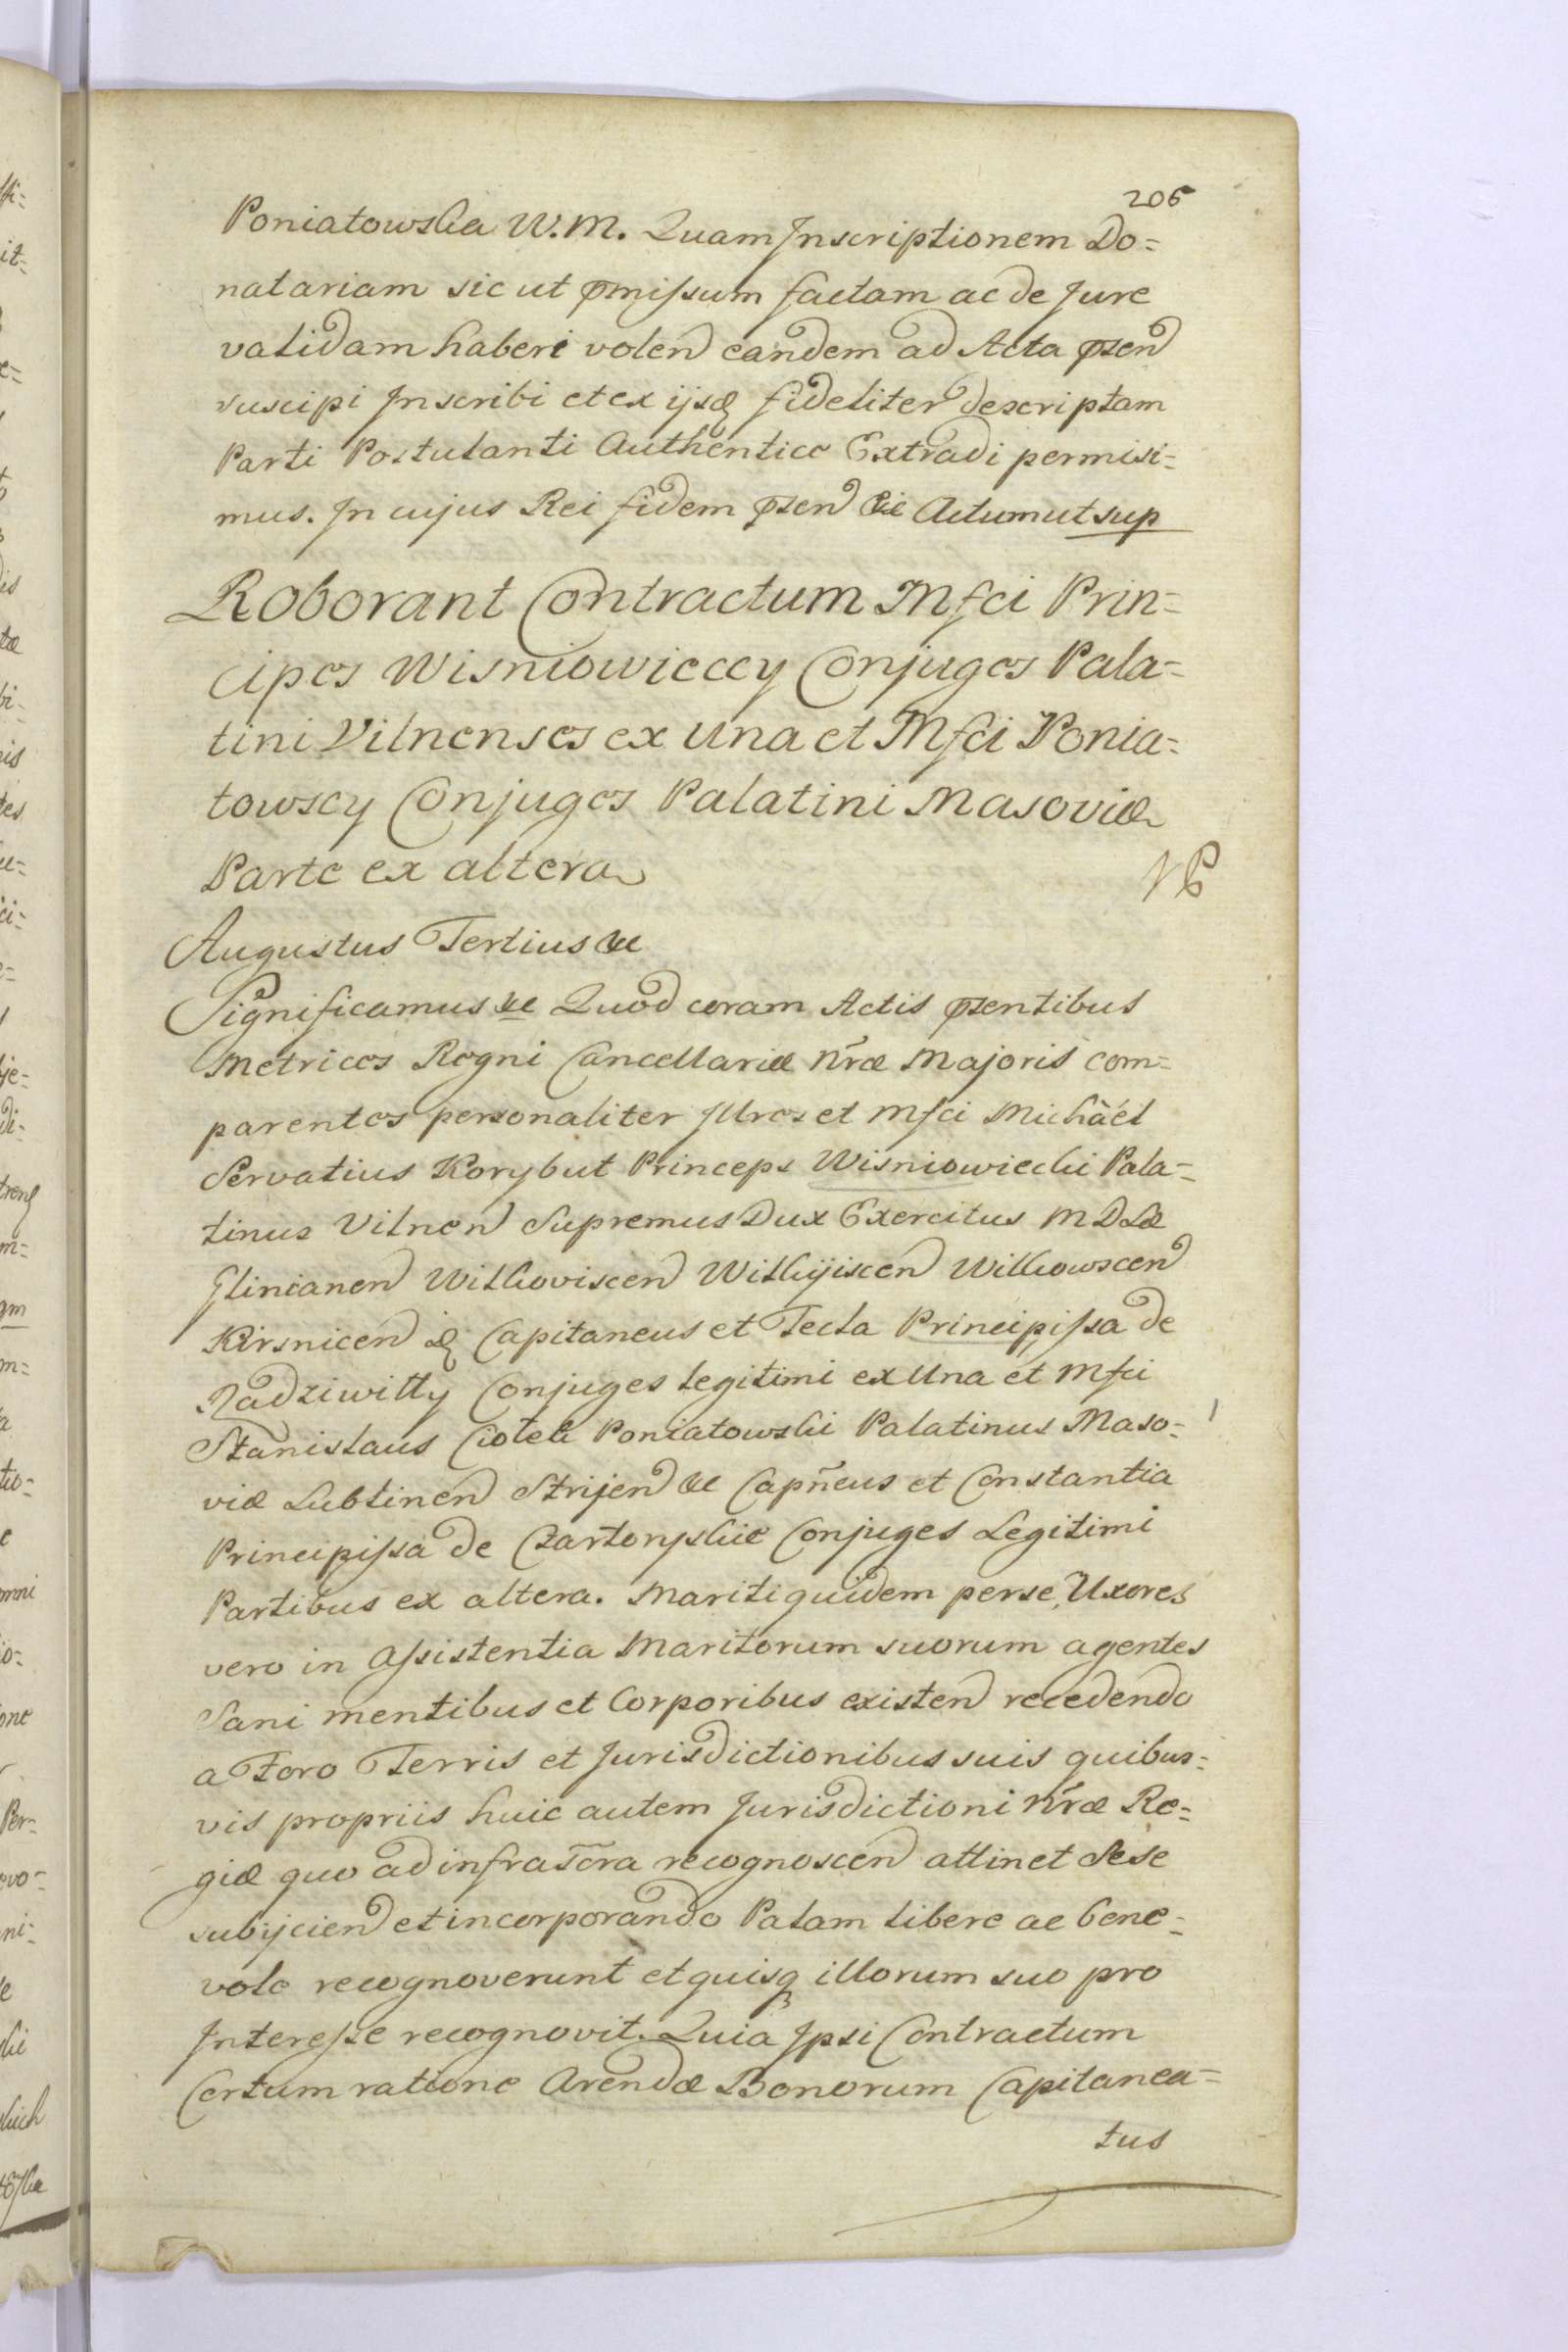 206
Poniatowska W.M. Quam Inscriptionem Do=
natariam sicut pmissum factam ac de Jure
validam haberi volen eandem ad Acta psen
suscipi Inscribi et ex ijsq fideliter descriptam
Parti Postulanti Authentice Extradi permisi=
mus. In cujus Rei fidem psen &c Actum ut sup
Roborant Contractum Mfci Prin=
cipes Wisniowieccy Conjuges Pala=
tini Vilnenses ex una et Mfci Ponia=
towscy Conjuges Palatini Masoviæ
Parte ex altera
Augustus Tertius &c
Significamus &c Quod coram Actis psentibus
Metrices Regni Cancellariæ nræ Majoris com=
parentes personaliter Illres et Mfci Michaël
Servatius Korybut Princeps Wisniowiecki Pala=
tinus Vilnen Supremus Dux Exercitus M D Læ
Glinianen Wilkoviscen Wilkijscen Wilkowscen
Kirsnicen &c Capitaneus et Tecla Principissa de
Radziwiłły Conjuges legitimi ex Una et Mfci
Stanislaus Ciołek Poniatowski Palatinus Maso=
viæ Lublinen Stryjen &c Capneus et Constantia
Principissa de Czartoryskie Conjuges Legitimi
Partibus ex altera. Mariti quidem per se, Uxores
vero in Assistentia Maritorum suorum agentes
Sani mentibus et Corporibus existen recedendo
a Foro Terris et Jurisdictionibus suis quibus=
vis propriis huic autem Jurisdictioni nræ Re=
giæ quo ad infrascra recognoscen attinet Sese
subijcien et incorporando Palam libere ac bene=
vole recognoverunt et quisq illorum suo pro
Interesse recognovit. Quia Ipsi Contractum
Certum ratione Arendæ Bonorum Capitanea=
tus